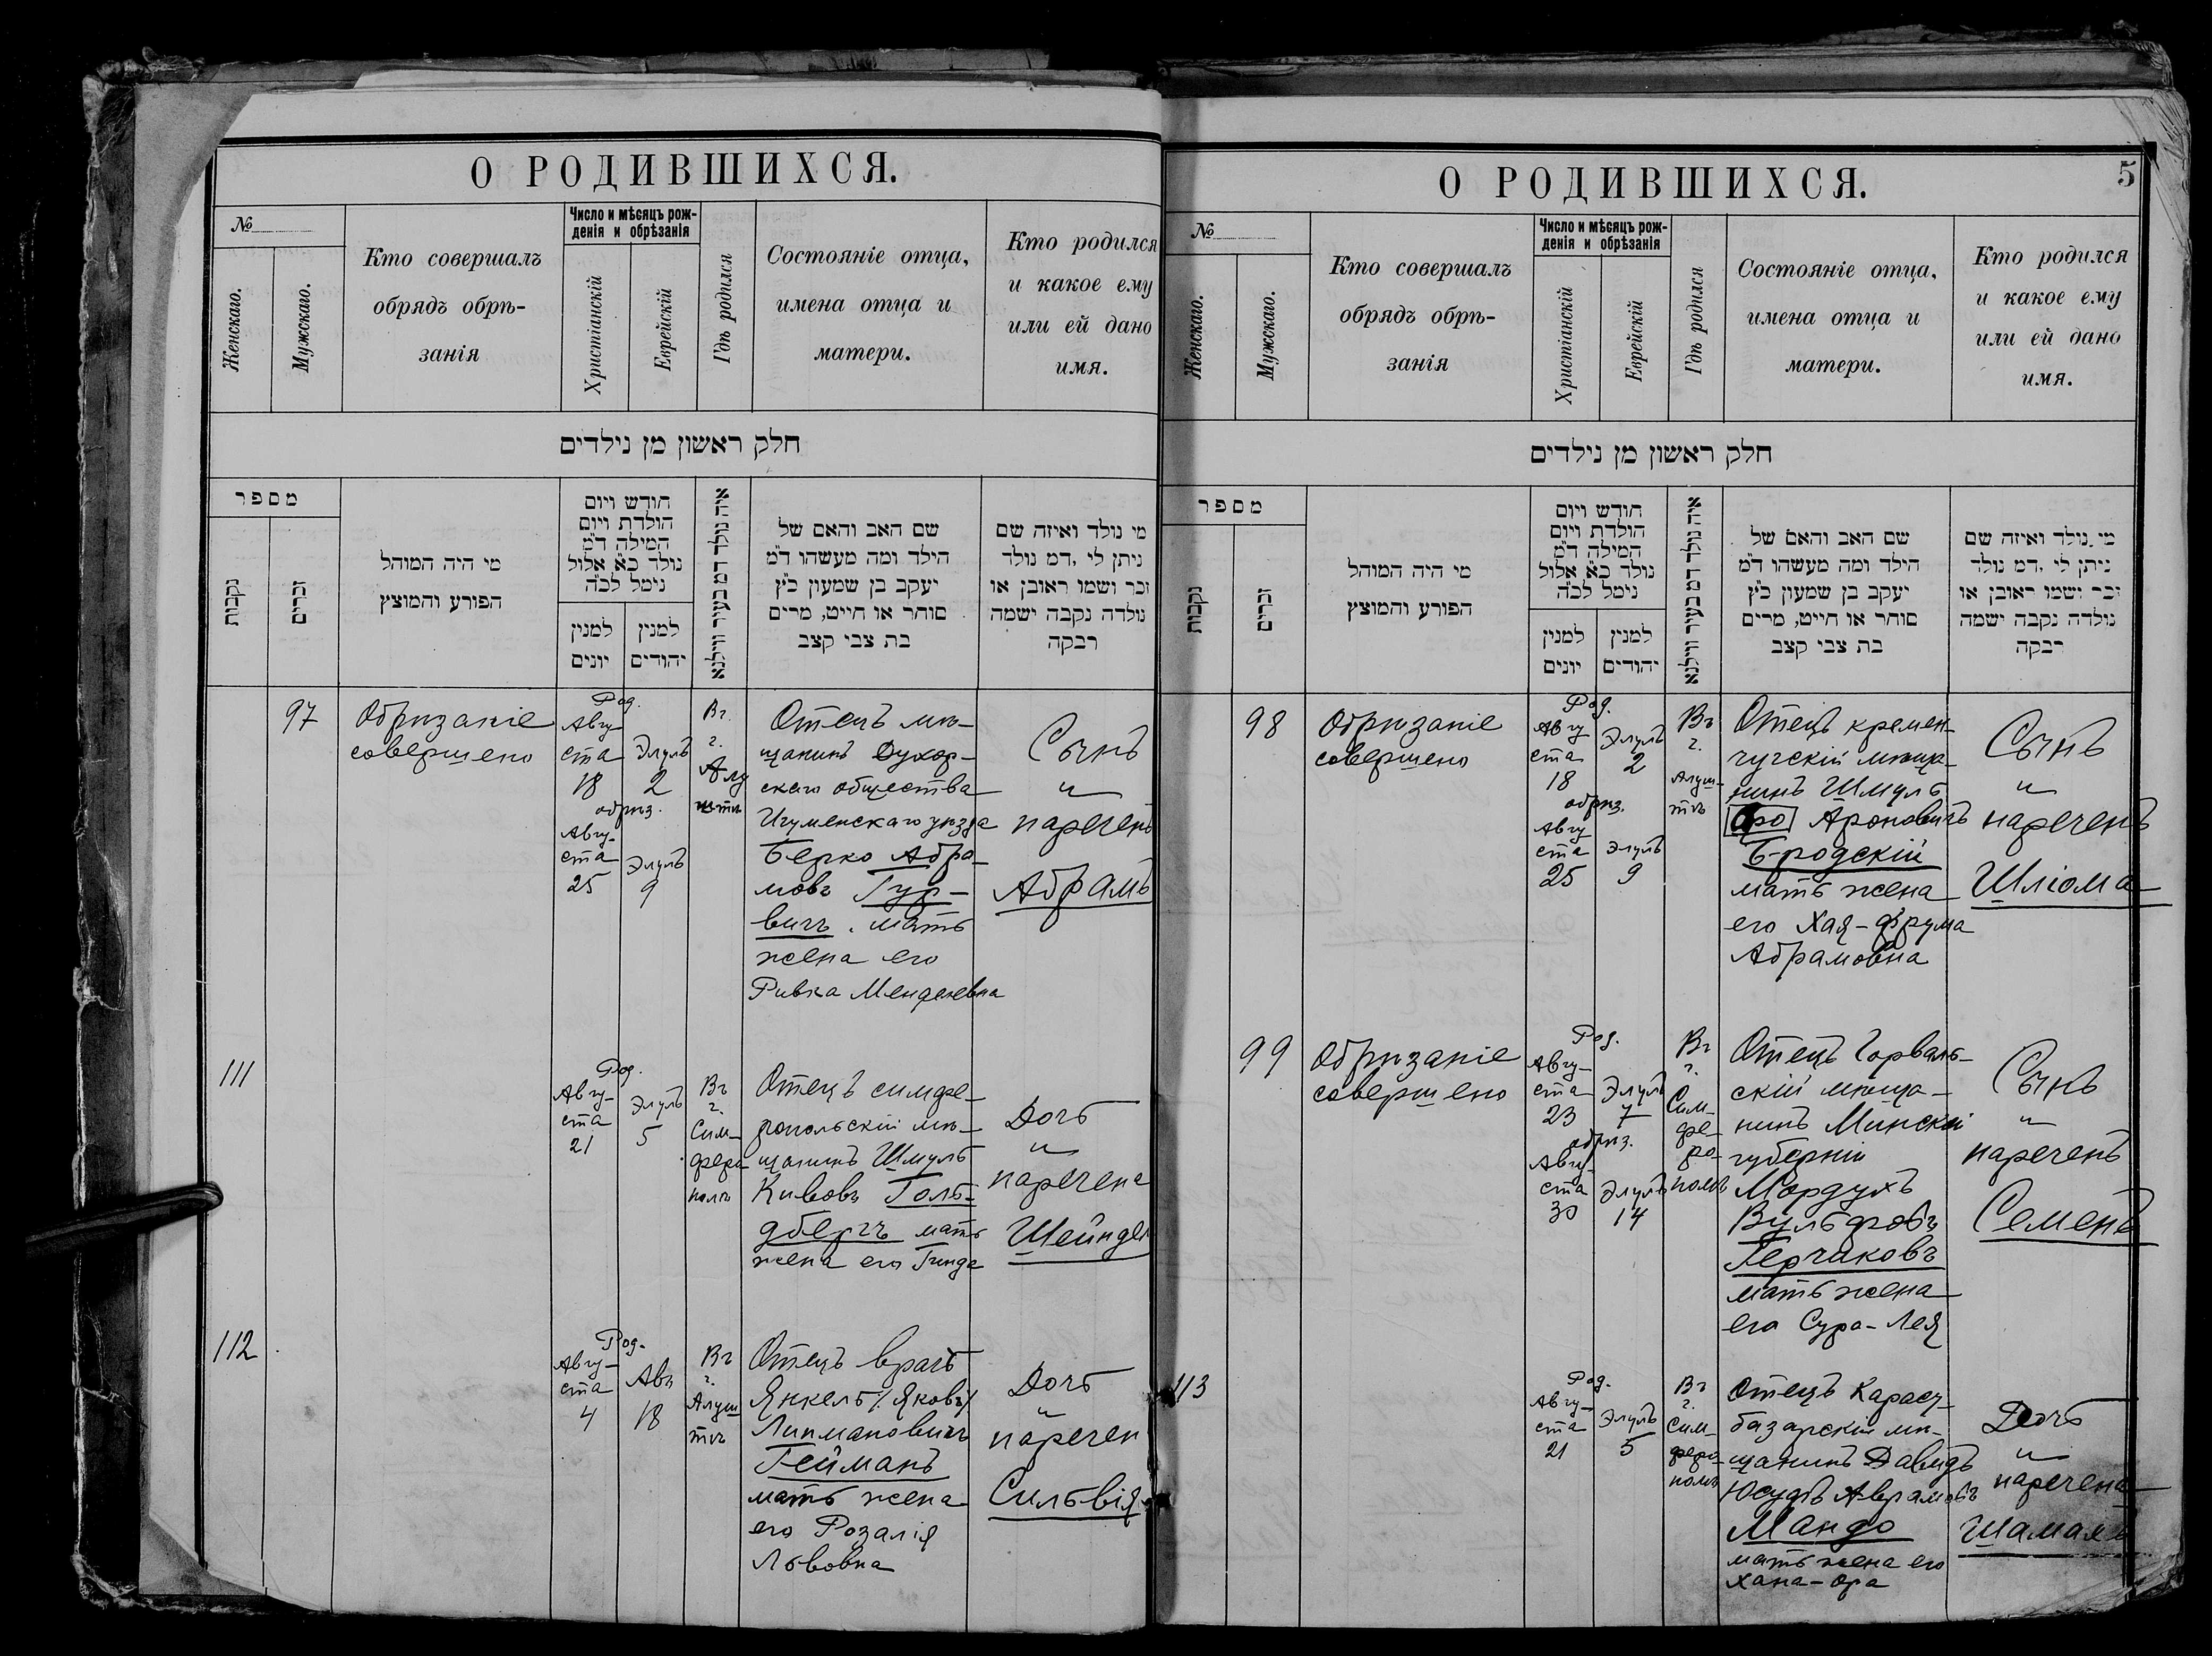 О РОДИВШИХСЯ.
№
Женскаго.
Мужскаго.
Кто совершалъ
обрядъ обрѣ-
занія
Число и мѣсяцъ рож-
денія и обрѣзанія
Христіанскій
Еврейскій
Гдѣ родился
Состояніе отца,
имена отца и
матери.
Кто родился
и какое ему
или ей дано
имя.
חלק ראשון מן נילדים
מספר
נקבות
זכרים
מי היה המוהל
הפורע והמוצץ
חודש ויום
הולדת ויום
המילה ד״מ
נולד כ״א אלול
נימל לכ״ה
למנין
יונים
למנין
יהודים
איה נולד דמ בעיר ווילנא
שם האב והאם של
הילד ומה מעשהו ד״מ
יעקב בן שמעון כ״ץ
סוחר או חייט, מרים
בת צבי קצב
מי נולד ואיזה שם
ניתן לי .דמ נולד
זכר ושמו ראובן או
נולדה נקבה ישמה
רבקה
97
Обрѣзаніе
совершено
Род.
Авгу-
ста
18
Элулъ
2
обрѣз.
Авгу-
ста
25
Элулъ
9
Въ
г.
Алу
штѣ
Отецъ мѣ-
щанинъ Духор-
скаго общества
Игуменскаго уѣзда
Берко Абра-
мовъ Гур-
вичъ. мать
жена его
Ривка Менделевна
Сынъ
"
нареченъ
Абрамъ
111
Род.
Авгу-
ста
21
Элулъ
5
Въ
г.
Сим-
феро
полѣ
Отецъ симфе-
ропольскій мѣ-
щанинъ Шмуль
Кивовъ Голь-
дбергъ мать
жена его Гинда
Дочь
"
наречена
Шейндел
112
Род.
Авгу-
ста
4
Авъ
18
Въ
г.
Алуш
тѣ
Отецъ врачъ
Янкель /Яковъ/
Липмановичъ
Гейманъ
мать жена
его Розалія
Львовна
Дочь
"
наречен
Сильвія
О РОДИВШИХСЯ.
5
№
Женскаго.
Мужскаго.
Кто совершалъ
обрядъ обрѣ-
занія
Число и мѣсяцъ рож-
денія и обрѣзанія
Христіанскій
Еврейскій
Гдѣ родился
Состояніе отца,
имена отца и
матери.
Кто родился
и какое ему
или ей дано
имя.
חלק ראשון מן נילדים
מספר
נקבות
זכרים
מי היה המוהל
הפורע והמוצץ
חודש ויום
הולדת ויום
המילה ד״מ
נולד כ״א אלול
נימל לכ״ה
למנין
יונים
למנין
יהודים
איה נולד דמ בעיר ווילנא
שם האב והאם של
הילד ומה מעשהו ד״מ
יעקב בן שמעון כ״ץ
סוחר או חייט, מרים
בת צבי קצב
מי נולד ואיזה שם
ניתן לי .דמ נולד
זכר ושמו ראובן או
נולדה נקבה ישמה
רבקה
98
Обрѣзаніе
совершено
Род.
Авгу
ста
18
Элулъ
2
обрѣз.
Авгу
ста
25
Элулъ
9
Въ
г.
Алуш-
тѣ
Отецъ кремен-
чугскій мѣща-
нинъ Шмуль
Ароновичъ
Бродскій
мать жена
его Хая-Фрума
Абрамовна
Сынъ
"
нареченъ
Шліома
99
Обрѣзаніе
совершено
Род.
Авгу-
ста
23
Элулъ
7
обрѣз.
Авгу-
ста
30
Элулъ
14
Въ
г.
Сим-
фе-
ро-
полѣ
Отецъ Горваль-
скій мѣща-
нинъ Минской
губерніи
Мордухъ
Вульфовъ
Герчиковъ
мать жена
его Сура-Лея
Сынъ
"
нареченъ
Семенъ
113
Род.
Авгу-
ста
21
Элулъ
5
Въ
г.
Сим-
феро
полѣ
Отецъ Карасу-
базарскій мѣ-
щанинъ Давидъ
Юсуфъ Аврамовъ
Мандо
мать жена его
Хана-Ора
Дочь
"
наречена